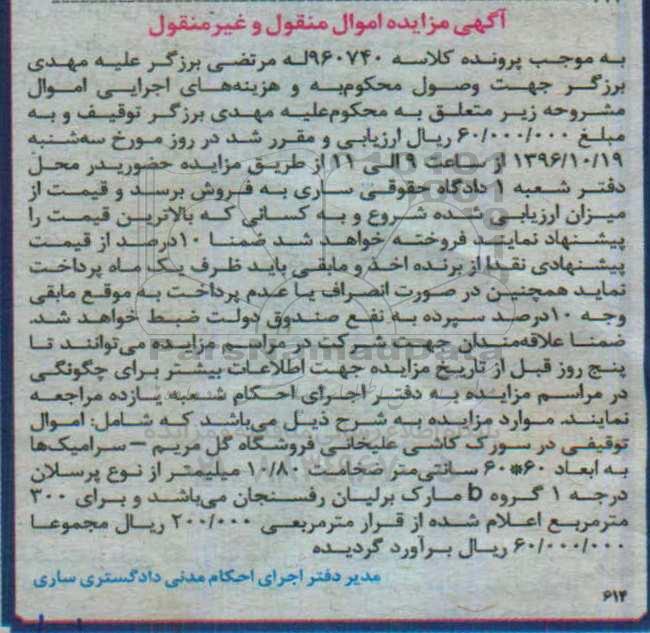 آگهی مزایده اموال منقول و غیرمنقول
به موجب پرونده کلاسه ۹۶۰۷۴۰له مرتضی برزگر علیه مهدی
برزگر جهت وصول محکوم‌به و هزینه‌های اجرایی اموال
مشروحه زیر متعلق به محکوم‌علیه مهدی برزگر توقیف و به
مبلغ ۶۰/۰۰۰/۰۰۰ ریال ارزیابی و مقرر شد در روز مورخ سه‌شنبه
۱۳۹۶/۱۰/۱۹ از ساعت ۹ الی ۱۱ از طریق مزایده حضوریدر محل
دفتر شعبه ۱ دادگاه حقوقی ساری به فروش برسد و قیمت از
میزان ارزیابی شده شروع و به کسانی که بالاترین قیمت را
پیشنهاد نمایند فروخته خواهد شد ضمنا ۱۰درصد از قیمت
پیشنهادی نقدا از برنده اخذ و مابقی باید ظرف یک ماه پرداخت
نماید همچنین در صورت انصراف یا عدم پرداخت به موقع مابقی
وجه ۱۰درصد سپرده به نفع صندوق دولت ضبط خواهد شد.
ضمنا علاقه‌مندان جهت شرکت در مراسم مزایده می‌توانند تا
پنج روز قبل از تاریخ مزایده جهت اطلاعات بیشتر برای چگونگی
در مراسم مزایده به دفتر اجرای احکام شعبه یازده مراجعه
نمایند. موارد مزایده به شرح ذیل می‌باشد که شامل: اموال
توقیفی در سورک کاشی علیخانی فروشگاه گل مریم – سرامیک‌ها
به ابعاد ۶۰*۶۰ سانتی‌متر ضخامت ۱۰/۸۰ میلیمتر از نوع پرسلان
درجه ۱ گروه b مارک برلیان رفسنجان می‌باشد و برای ۳۰۰
مترمربع اعلام شده از قرار مترمربعی ۲۰۰/۰۰۰ ریال مجموعا
۶۰/۰۰۰/۰۰۰ ریال برآورد گردیده
مدیر دفتر اجرای احکام مدنی دادگستری ساری
۶۱۴
ParsNamadData